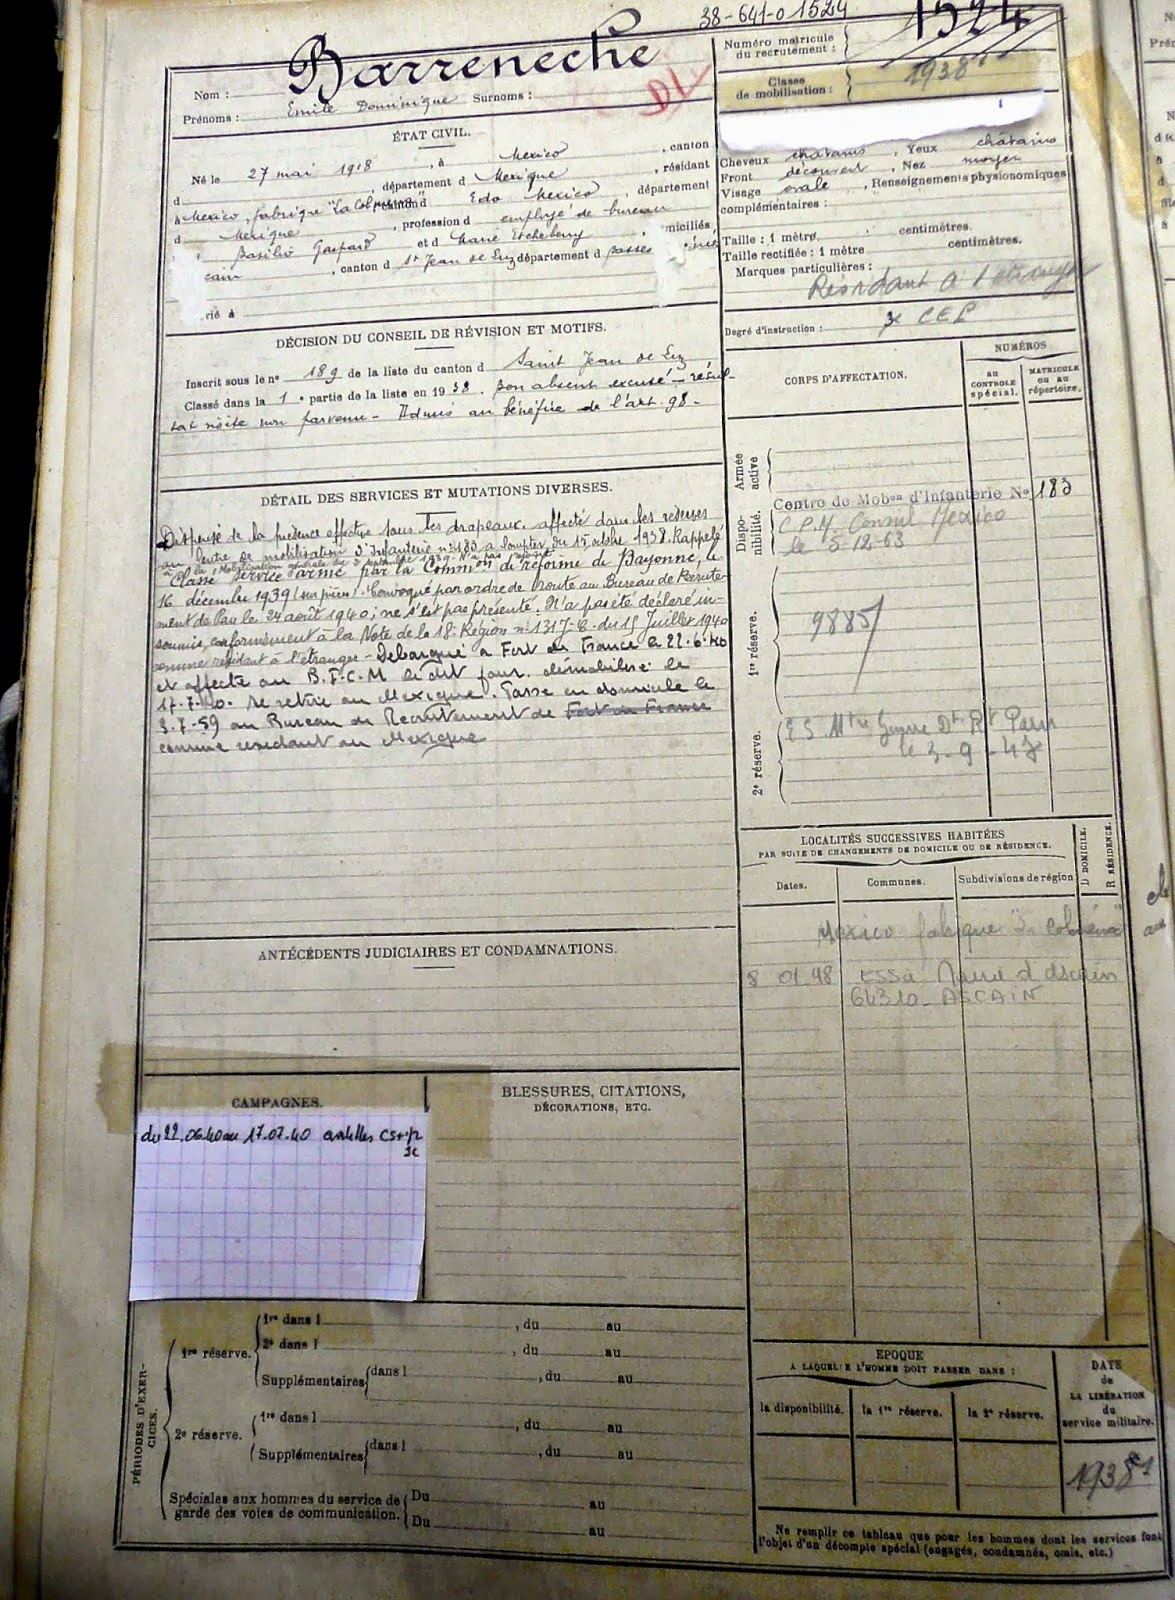 38-641-0 1524
Numéro matricule du recrutement : 1524
Classe de mobilisation : 1938
Nom : Barreneche
Prénoms : Emile Dominique Surnoms :
ÉTAT CIVIL.
Né le 27 mai 1918, à Mexico, canton
d, département d Mexique, résidant
à Mexico, fabrique "La Colmena" canton d Edo Mexico, département
d Mexique, profession d employé de bureau
Basilio Gaspard et d Marie Etcheberry, miciliés
cain, canton d St Jean de Luz département d Basses
rié à
Cheveux châtains, Yeux châtains
Front découvert, Nez moyen
Visage ovale, Renseignements physionomiques
complémentaires :
Taille : 1 mètre, centimètres.
Taille rectifiée : 1 mètre centimètres.
Marques particulières :
Résidant à l'étranger
Degré d'instruction : 3 CEP
DÉCISION DU CONSEIL DE RÉVISION ET MOTIFS.
Inscrit sous le no 189 de la liste du canton d Saint Jean de Luz
Classé dans la 1e partie de la liste en 1938. Bon absent excusé - résul-
tat visite non parvenu - Admis au bénéfice de l'art. 98 -
DÉTAIL DES SERVICES ET MUTATIONS DIVERSES.
Dispensé de la présence effective sous les drapeaux. affecté dans les réserves
au centre de mobilisation d'Infanterie n° 183 à compter du 15 octobre 1938. Rappelé
à la Mobilisation générale du 2 septembre 1939. N'a pas rejoint
Classé service armé par la Common de réforme de Bayonne, le
16 décembre 1939 (sur pièces). Convoqué par ordre de route au Bureau de Recrute-
ment de Pau le 24 août 1940; ne s'est pas présenté. N'a pas été déclaré in-
soumis, conformément à la Note de la 18e Région n° 1317-C. du 15 Juillet 1940
comme résidant à l'étranger - Débarqué à Fort de France le 22.6.40
et affecté au B.I.C.M le dit jour. démobilisé le
17.7.40. Se retire au Mexique. Passe en domicile le
3.7.59 au Bureau de Recrutement de Fort de France
comme résidant au Mexique
CORPS D'AFFECTATION.
NUMÉROS
AU CONTROLE SPÉCIAL.
MATRICULE OU AU RÉPERTOIRE.
Armée active
Disponibilité.
Centre de Mobon d'Infanterie No 183
C.P.M. Consul Mexico
le 5-12-63
1re réserve.
9885
2e réserve.
E S. Mtre Guerre Dt Rt Paris
le 3-9-47
LOCALITÉS SUCCESSIVES HABITÉES
PAR SUITE DE CHANGEMENTS DE DOMICILE OU DE RÉSIDENCE.
Dates.
Communes.
Subdivisions de région
D DOMICILE.
R RÉSIDENCE.
Mexico fabrique "La Colmena"
8 01.48 Mairie d'Ascain
64310 - ASCAIN
ANTÉCÉDENTS JUDICIAIRES ET CONDAMNATIONS.
CAMPAGNES.
du 22.06.40 au 17.07.40 antilles CS+1/2
BLESSURES, CITATIONS,
DÉCORATIONS, ETC.
PÉRIODES D'EXERCICES.
1re réserve.
1re dans l, du au
2e dans l, du au
Supplémentaires dans l, du au
2e réserve.
1re dans l, du au
Supplémentaires dans l, du au
Spéciales aux hommes du service de garde des voies de communication.
Du au
Du au
EPOQUE
A LAQUELLE L'HOMME DOIT PASSER DANS :
la disponibilité.
la 1re réserve.
la 2e réserve.
DATE
de
LA LIBÉRATION
du
service militaire.
1938
Ne remplir ce tableau que pour les hommes dont les services font
l'objet d'un décompte spécial (engagés, condamnés, omis, etc.)